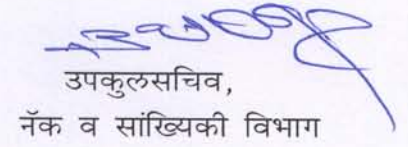 उपकुलसचिव,
नॅक व सांख्यिकी विभाग